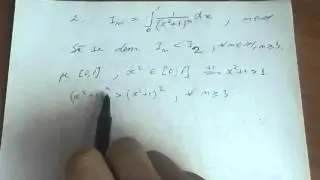 2. Iₙ = ∫₀¹ 1/(x²+1)ⁿ dx , n∈ℕ
Să se dem. Iₙ < I₂, ∀ n∈ℕ, n≥3.
pe [0,1] , x² ∈ [0,1] ⟹ x²+1>1
(x² )ⁿ > (x²+1)² , ∀ n≥3